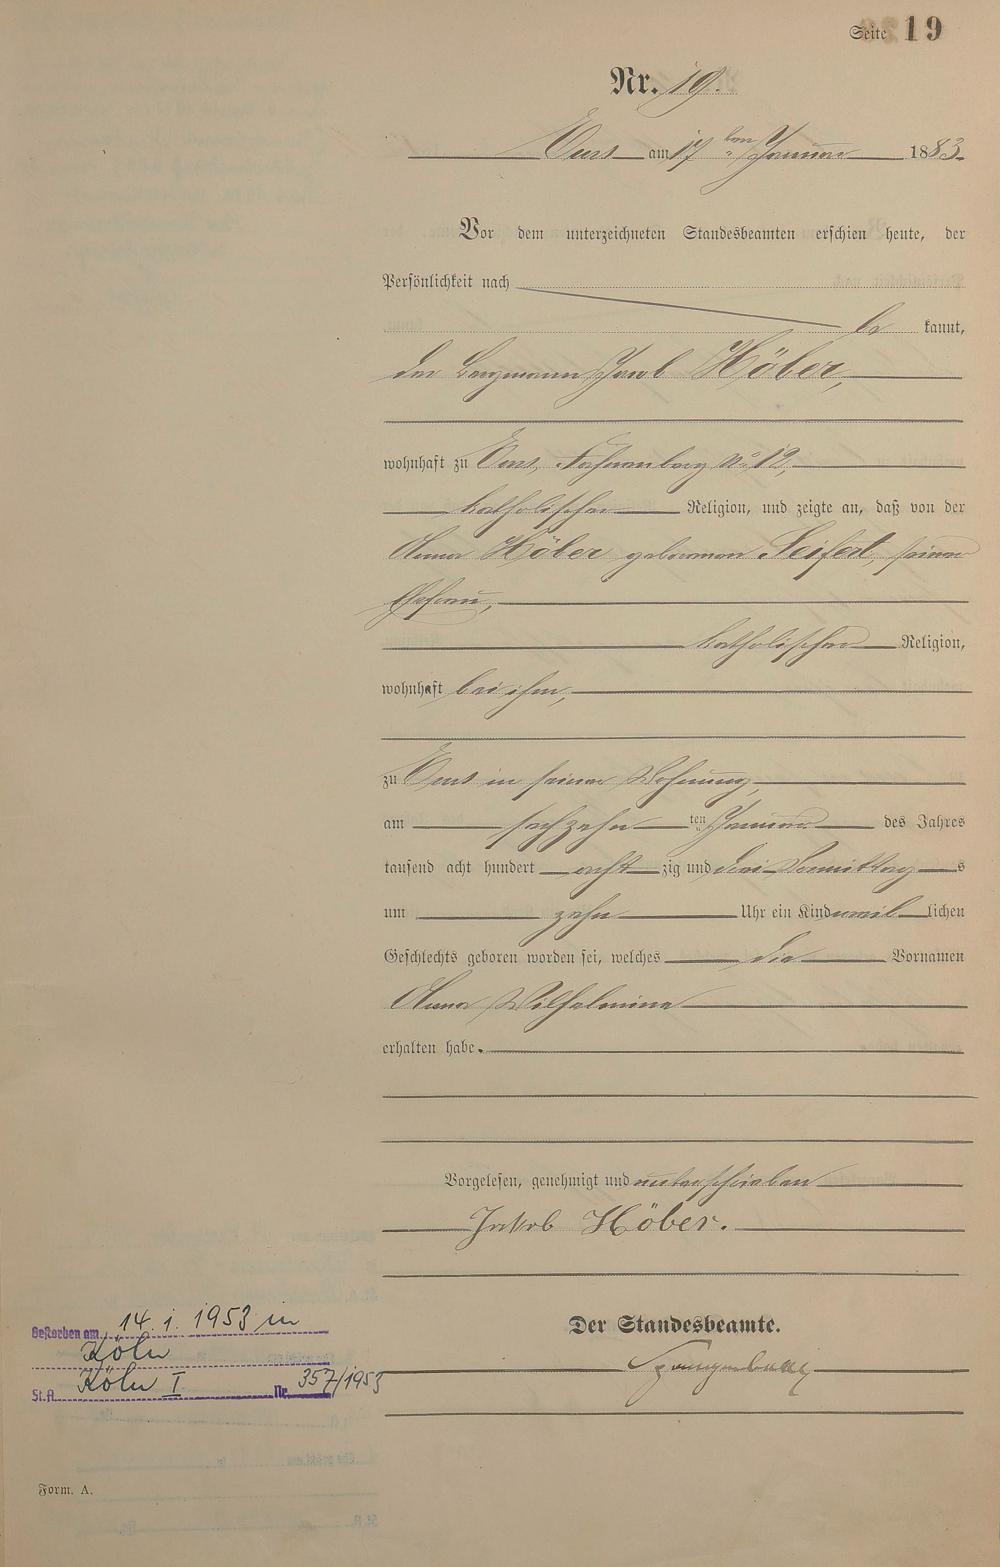 Seite 19
Nr. 19.
Ems am 17ten Januar 1883.
Vor dem unterzeichneten Standesbeamten erschien heute, der
Persönlichkeit nach
be kannt,
der Bergmann Jacob Höber,
wohnhaft zu Ems, No 12,
katholischer Religion, und zeigte an, daß von der
Anna Höber geborenen Seifert, seiner
Ehefrau,
katholischer Religion,
wohnhaft bei ihm,
zu Ems in seiner Wohnung,
am sechzehn ten Januar des Jahres
tausend acht hundert acht zig und drei Vormittag s
um zehn Uhr ein Kind weib lichen
Geschlechts geboren worden sei, welches die Vornamen
Anna Wilhelmina
erhalten habe.
Vorgelesen, genehmigt und unterschrieben
Jakob Höber.
Der Standesbeamte.
Gestorben am 14. 1. 1953 in
Köln
St.A. Köln I Nr. 357/1953
Form. A.